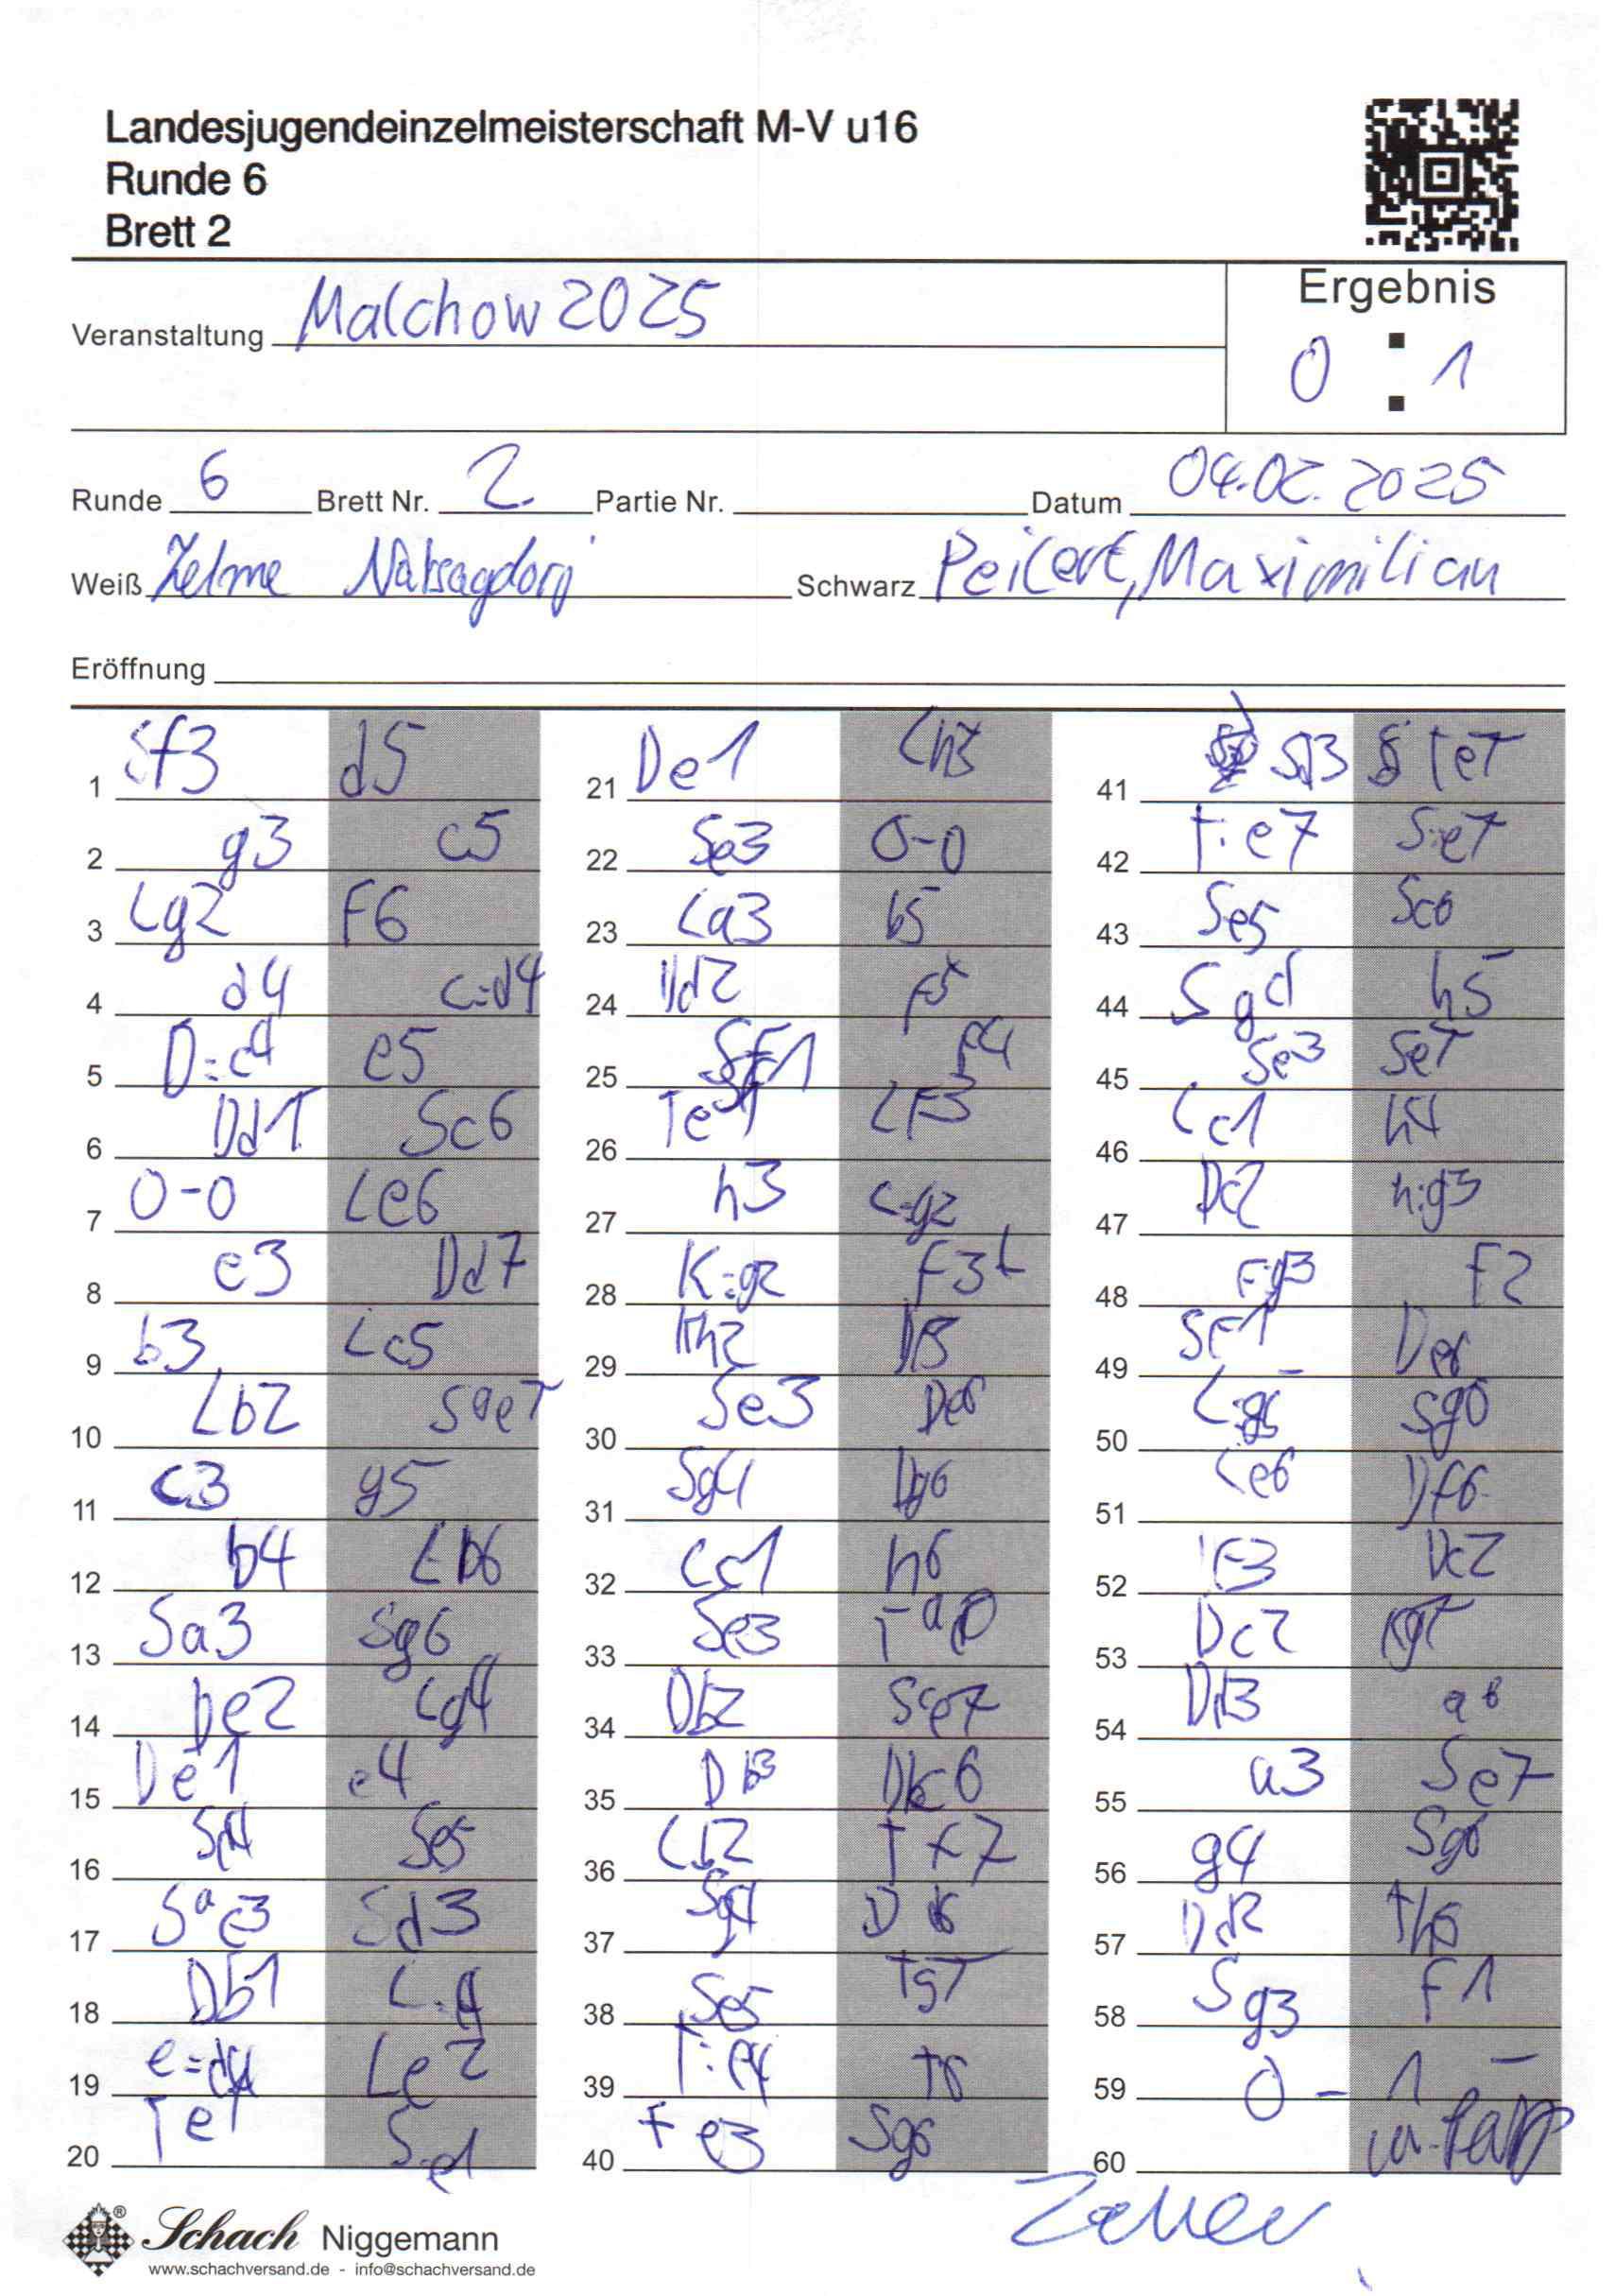 Landesjugendeinzelmeisterschaft M-V u16
Runde 6
Brett 2
Veranstaltung Malchow 2025
Ergebnis
0 : 1
Runde 6 Brett Nr. 2. Partie Nr. Datum 04.02.2025
Weiß Zelme Natsagdorj Schwarz Peilert, Maximilian
Eröffnung
1 Sf3 d5
2 g3 c5
3 Lg2 F6
4 d4 c:d4
5 D:d4 e5
6 Dd1 Sc6
7 0-0 Le6
8 e3 Dd7
9 b3 Lc5
10 Lb2 Sge7
11 c3 g5
12 b4 Lb6
13 Sa3 Sg6
14 De2 Lg4
15 De1 e4
16 Sd4 Se5
17 Sac3 Sd3
18 Db1 L:d4
19 e:d4 Le2
20 Te1 S:e1
21 De1 Lh3
22 Se3 0-0
23 La3 b5
24 Dd2 f5
25 Sf1 f4
26 Te1 LF3
27 h3 L:g2
28 K:g2 F3+
29 Kh2 Df5
30 Se3 De6
31 Sg4 Dg6
32 Lc1 h6
33 Se3 Tae8
34 Db2 Sce7
35 Db3 Dc6
36 Lb2 Tf7
37 Sg4 Db6
38 Se5 Tg7
39 T:e4 T8
40 Te3 Sg6
41 Sd3 Te7
42 T:e7 S:e7
43 Se5 Sc6
44 Sg4 h5
45 Se3 Se7
46 Lc1 h4
47 Dc2 h:g3
48 F:g3 F2
49 Sf1 De6
50 L:g5 Sg6
51 Le6 Df6
52 F3 Dc2
53 Dc2 Kg7
54 Dd3 a6
55 a3 Se7
56 g4 Sg6
57 Dd2 Th8
58 Sg3 F1
59 0 - 1
60
Schach Niggemann
www.schachversand.de - info@schachversand.de